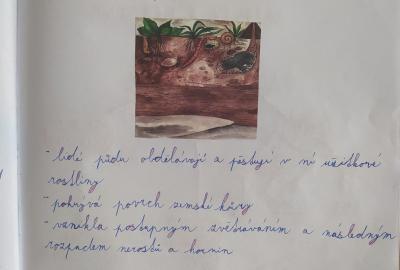 - lidé půdu obdělávají a pěstují v ní užitkové
rostliny
- pokrývá povrch zemské kůry
- vznikla postupným zvětráváním a následným
rozpadem nerostů a hornin